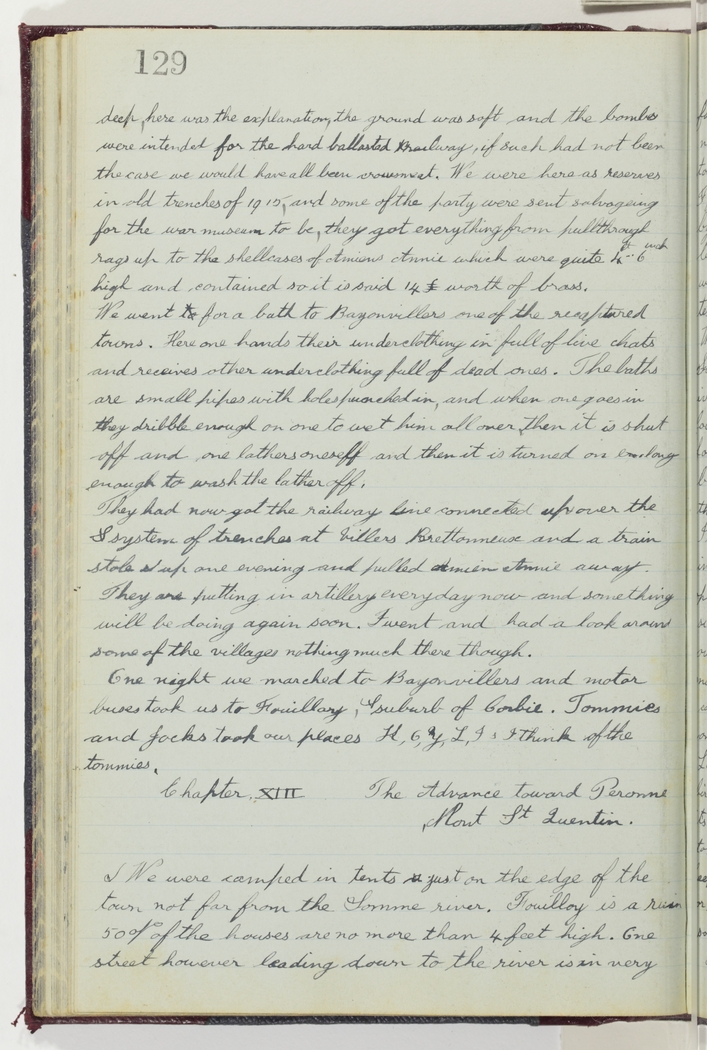 129
deep, here was the explanation, the ground was soft and the bombs
were intended for the hard ballasted railway, if such had not been
the case we would have all been crowemeat. We were here as reserves
in old trenches of 1915, and some of the party were sent salvageing
for the war museum to be, they got everything from pullthrough
rags up to the shellcases of Amiens Annie which were quite 4ft-6 inch
high and contained so it is said 14 £ worth of brass.
We went for a bath to Bayonvillers one of the recaptured
towns. Here one hands their underclothing in full of live chats
and receives other underclothing full of dead ones. The baths
are small pipes with holes punched in, and when one goes in
they dribble enough on one to wet him all over then it is shut
off and one lathers oneself and then it is turned on long
enough to wash the lather off.
They had now got the railway line connected up over the
S system of trenches at Villers Brettonneux and a train
stole up one evening and pulled Amien Annie away.
They are putting in artillery everyday now and something
will be doing again soon. I went and had a look around
some of the villages nothing much there though.
One night we marched to Bayonvillers and motor
buses took us to Fouillary, suburb of Corbie. Tommies
and Jocks took our places H, L, I s I think of the
tommies.
Chapter XIII The Advance toward Peronne
Mont St Quentin.
We were camped in tents just on the edge of the
town not far from the Somme river. Fouilloy is a ruin
50% of the houses are no more than 4 feet high. One
street however leading down to the river is in very